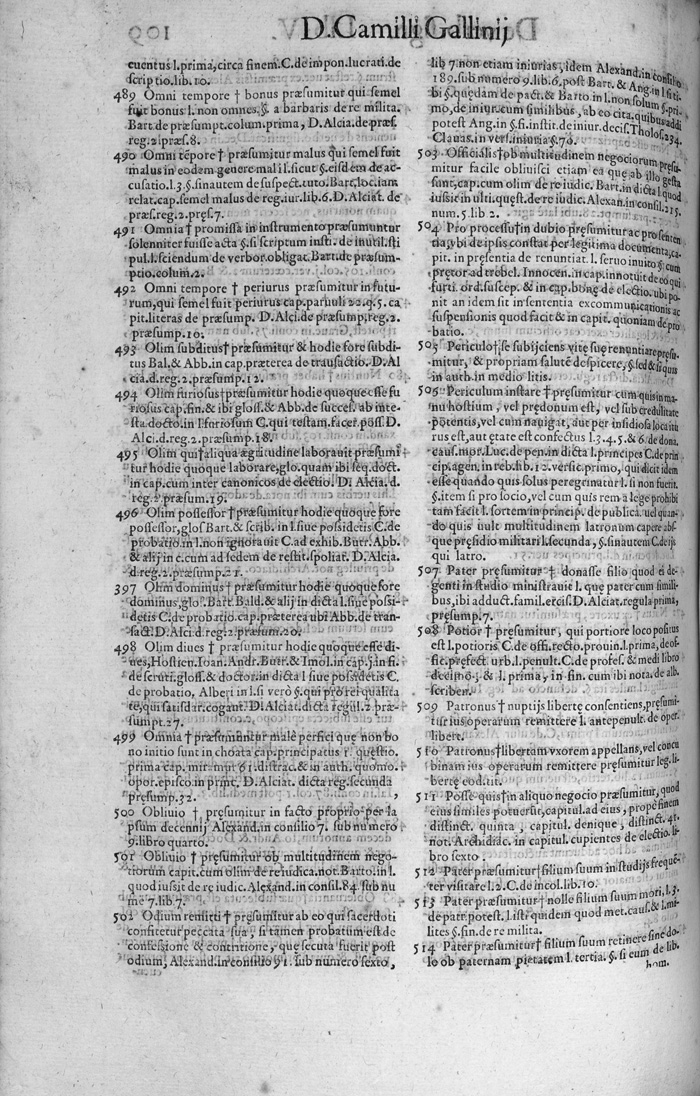 D. Camilli Gallinij
cuentus l. prima, circa finem. C. de impon. lucrati. de
scriptio. lib. 10.
489 Omni tempore † bonus præsumitur qui semel
fuit bonus l. non omnes. §. a barbaris de re milita.
Bart. de præsumpt. colum. prima, D. Alcia. de præs.
reg. 2. præs. 8.
490 Omni tẽpore † præsumitur malus qui semel fuit
malus in eodem genere mali l. si cut §. eisdem de ac-
cusatio. l. 3. §. sinautem de suspect. tuto. Bart. loc. iam
relat. cap. semel malus de reg. iur. lib. 6. D. Alciat. de
præs. reg. 2. præs. 7.
491 Omnia † promissa in instrumento præsumuntur
solenniter fuisse acta §. si scriptum insti. de inutil. sti
pul. l. sciendum de verbor. obligat. Bart. de præsum-
ptio. colum. 2.
492 Omni tempore † periurus præsumitur in futu-
rum, qui semel fuit periurus cap. paruuli 22. q. 5. ca
pit. literas de præsump. D. Alci. de præsump. reg. 2.
præsump. 10.
493 Olim subditus † præsumitur & hodie fore subdi-
tus Bal. & Abb. in cap. præterea de transactio. D. Al
cia. d. reg. 2. præsump. 12.
494 Olim furiosus † præsumitur hodie quoque esse fu
riosus cap. fin. & ibi gloss. & Abb. de succes. ab inte-
sta. docto. in l. furiosum C. qui testam. facer. poss. D.
Alci. d. reg. 2. præsump. 18.
495 Olim qui † aliqua ægritudine laborauit præsumi
tur hodie quoque laborare, glo. quam ibi seq. doct.
in cap. cum inter canonicos de electio. D. Alcia. d.
reg. 2. præsum. 19.
496 Olim possessor † præsumitur hodie quoque fore
possessor, glos. Bart. & scrib. in l. siue possidetis C. de
probatio. in l. non ignorauit C. ad exhib. Butr. Abb.
& alij in c. cum ad sedem de restit. spoliat. D. Alcia.
d. reg. 2. præsump. 21.
397 Olim dominus † præsumitur hodie quoque fore
dominus, glos. Bart. Bald. & alij in dicta l. siue possi-
detis C. de probatio. cap. præterea ubi Abb. de tran-
sact. D. Alci. d. reg. 2. præsum. 20.
498 Olim diues † præsumitur hodie quoque esse di-
ues, Hostien. Ioan. Andr. Butr. & Imol. in cap. j. in fi.
de scruti. gloss. & doctor. in dicta l siue possidetis C.
de probatio. Alberi in l. si verò §. qui pro rei qualita
te, qui satisdar. cogant. D. Alciat. dicta regul. 2 præ-
sumpt. 27.
499 Omnia † præsumuntur malè perfici quę non bo
no initio sunt in choata cap. principatus 1. questio.
prima cap. mir. mur 61. distrac. & in auth. quomo.
opor. episco. in princ. D. Alciat. dicta reg. secunda
pręsump. 32.
500 Obliuio † pręsumitur in facto proprio per la
psum decennij Alexand. in consilio 7. sub numero
9. libro quarto.
501 Obliuio † præsumitur ob multitudinem nego-
tiorum capit. cum olim de re iudica. not. Barto. in l.
quod iussit de re iudic. Alexand. in consil. 84. sub nu
me 7. lib. 7.
502 Odium remitti † pręsumitur ab eo qui sacerdoti
confitetur peccata sua, si tamen probatum est de
confessione & contritione, quę secuta fuerit post
odium, Alexand. in consilio 91. sub numero sexto,
lib 7. non etiam iniurias, idem Alexand. in consilio
189. sub numero 9. lib. 6. post Bart. & Ang. in l. si ti-
bi §. quędam de pact. & Barto in l. non solum §. pri-
mo, de iniur. cum similibus, ab eo cita. quibus addi
potest Ang. in §. fi. instit. de iniur. decis. Tholos. 234.
Clauas. in ver. iniuria §. 76.
503 Officialis † ob multitudinem negociorum pręsu
mitur facile obliuisci etiam ea quę ab illo gesta
sunt, cap. cum olim de re iudic. Bart. in dicta l. quod
iussit in ulti. quęst. de re iudic. Alexan. in consil. 215.
num. 5. lib. 2.
504 Pro processu † in dubio pręsumitur ac pro senten
tia, ybi de ipsis constat per legitima documenta, ca-
pit. in pręsentia de renuntiat. l. seruo inuito §. cum
prętor ad trebel. Innocen. in cap. innotuit de eo qui
furti. ord. suscep. & in cap. bonę de electio. ubi po-
nit an idem sit in sententia excommunicationis ac
suspensionis quod facit & in capit. quoniam de pro
batio.
505 Periculo † se subijciens vitę suę renuntiare pręsu-
mitur, & propriam salutẽ despicere, §. sed & si quis
in auth. in medio litis.
506 Periculum instare † pręsumitur cum quis in ma-
nu hostium, vel prędonum est, vel sub credulitate
potentis, vel cum nauigat, aut per insidiosa loca itu
rus est, aut ętate est confectus l. 3. 4. 5. & 6. de dona.
caus. mor. Luc. de pen. in dicta l. principes C. de prin
cip. agen. in reb. lib. 12. versic. primo, qui dicit idem
esse quando quis solus peregrinatur l. si non fuerit.
§. item si pro socio, vel cum quis rem a lege prohibi
tam facit l. sortem in princip. de publica. uel quan-
do quis uult multitudinem latronum capere abs-
que pręsidio militari l. secunda, §. sinautem C. de ijs
qui latro.
507 Pater pręsumitur † donasse filio quod ei de-
genti in studio ministrauit l. quę pater cum simili-
bus, ibi adduct. famil. ercis. D. Alciat. regula prima,
pręsump. 7.
508 Potior † pręsumitur, qui portiore loco positus
est l. potioris C. de offi. recto. prouin. l. prima, de of-
fit. prefect. urb. l. penult. C. de profes. & medi libro
decimo, & l. prima, in fin. cum ibi nota. de alb.
scriben.
509 Patronus † nuptijs libertę consentiens, pręsumi-
tur ius operarum remittere l. antepenult. de oper.
libert.
510 Patronus † libertam vxorem appellans, vel concu
binam ius operarum remittere pręsumitur leg. li-
bertę eod. tit.
511 Posse quis † in aliquo negocio præsumitur, quod
eius similes potuerit, capitul. ad eius, propè finem
distinct. quinta, capitul. denique, distinct. 41.
not. Archidiac. in capitul. cupientes de electio. li-
bro sexto.
512 Pater præsumitur † filium suum in studijs frequẽ-
ter visitare l. 2. C. de incol. lib. 10.
513 Pater præsumitur † nolle filium suum mori, l. 3.
de patr. potest. l. isti quidem quod met. caus. & l. mi-
lites §. fin. de re milita.
514 Pater præsumitur † filium suum retinere sine do-
lo ob paternam pietatem l. tertia. §. si eum de lib.
hom.